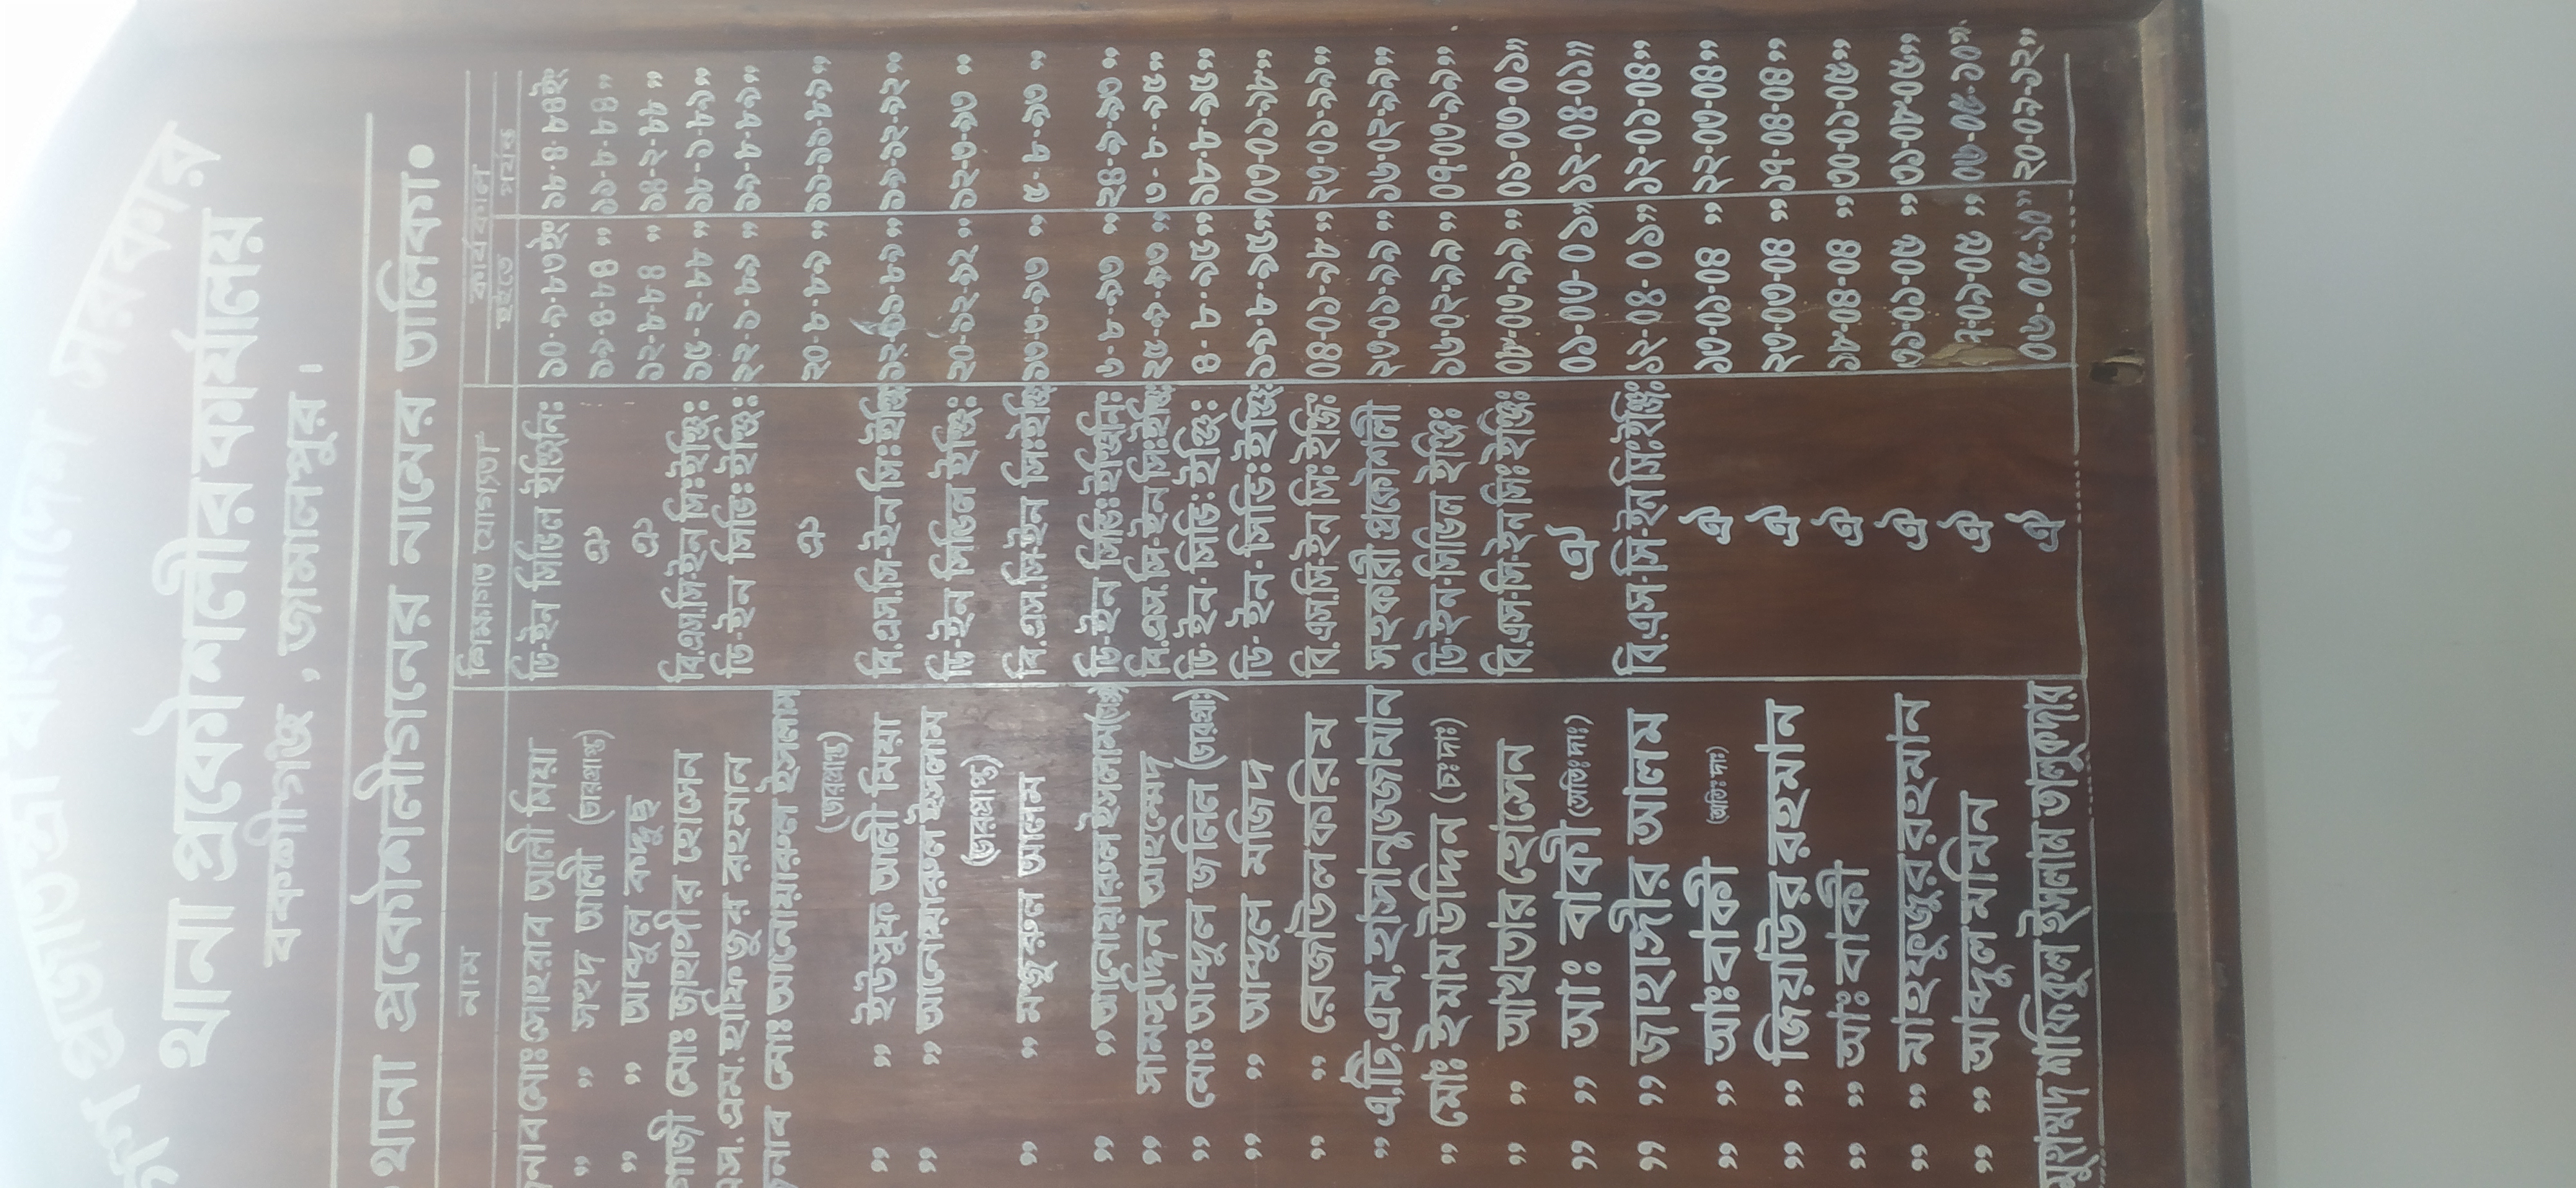 গণপ্রজাতন্ত্রী বাংলাদেশ সরকার
থানা প্রকৌশলীর কার্যালয়
বকশীগঞ্জ , জামালপুর ।
থানা প্রকৌশলীগনের নামের তালিকা ●
নাম শিক্ষাগত যোগ্যতা কার্য কাল
হইতে পর্যন্ত
জনাব মোঃ সোহরাব আলী মিয়া ডি-ইন সিভিল ইঞ্জিনিঃ ১০-৭-৮৩ইং ১৮-৪-৮৪ইং
" " সহদ আলী (ভারপ্রাপ্ত) ঐ ১৯-৪-৮৪ " ১১-৮-৮৪ "
" " আব্দুল কদ্দুছ ঐ ১২-৮-৮৪ " ১৪-২-৮৮ "
গাজী মোঃ জাহাঙ্গীর হোসেন বি.এসসি-ইন সি:ইঞ্জি: ১৫-২-৮৮ " ১৮-১-৮৯ "
এস. এম. হাফিজুর রহমান ডি-ইন সিভি: ইঞ্জি: ২২-১-৮৯ " ১৯-৮-৮৯ "
জনাব মোঃ আনোয়ারুল ইসলাম ঐ ২০-৮-৮৯ " ১১-১১-৮৯ "
(ভারপ্রাপ্ত)
" " ইউসুফ আলী মিয়া বি.এস.সি-ইন সি: ইঞ্জি: ১২-১১-৮৯ " ১৯-১২-৯২ "
" " আনোয়ারুল ইসলাম ডি-ইন সিভিল ইঞ্জি: ২০-১২-৯২ " ১২-৩-৯৩ "
(ভারপ্রাপ্ত)
" " মজুরুল আলম বি.এস.সি-ইন সি:ইঞ্জি: ১৩-৩-৯৩ " ৫-৮-৯৩ "
" " আনোয়ারুল ইসলাম ডি-ইন সিভি: ইঞ্জিনি: ৬-৮-৯৩ " ২৪-৯-৯৩ "
" সামসুদ্দিন আহম্মেদ বি.এস.সি-ইন সি:ইঞ্জি: ২৫-৯-৯৩ " ৩-৮-৯৫ "
" মোঃ আব্দুল জলিল (ভারপ্রা:) ডি-ইন-সিভি: ইঞ্জি: ৪-৮-৯৫ " ১৮-৮-৯৫ "
" " আব্দুল মজিদ ডি-ইন-সিভি: ইঞ্জি: ১৯-৮-৯৫ " ০৩-০১-৯৮ "
" " রেজাউল করিম বি.এস.সি-ইন সি: ইঞ্জি: ০৪-০১-৯৮ " ২৭-০১-৯৯ "
" এ.টি.এম. হাসানুজ্জামান সহকারী প্রকৌশলী ২৭-০১-৯৯ " ১৬-০২-৯৯ "
" মোঃ ইমাম উদ্দিন (চঃ দাঃ) ডি-ইন-সিভিল ইঞ্জিঃ ১৬-০২-৯৯ " ০৭-০৩-৯৯ "
" " আখতার হোসেন বি.এস-সি-ইন সিঃ ইঞ্জিঃ ০৮-০৩-৯৯ " ০১-০৩-০১ "
" " আঃ বাকী (অতিঃ দাঃ) ঐ ০১-০৩-০১ " ১২-০৪-০১ "
" " জাহাঙ্গীর আলম বি.এস-সি-ইন সিঃ ইঞ্জিঃ ১২-০৪-০১ " ১২-০১-০৪ "
" " আঃ বাকী (অতিঃ দাঃ) ঐ ১৩-০১-০৪ " ২২-০৩-০৪ "
" " জিয়াউর রহমান ঐ ২৩-০৩-০৪ " ১৭-০৪-০৪ "
" " আঃ বাকী ঐ ১৮-০৪-০৪ " ৩০-০১-০৫ "
" " মাহফুজুর রহমান ঐ ৩১-০১-০৫ " ৩১-০৮-০৫ "
" " আব্দুল মমিন ঐ ৭-০৯-০৫ "
মুহাম্মদ শফিকুল ইসলাম তালুকদার ঐ ০৬-০৫-১০ " ২০-০৯-১২ "